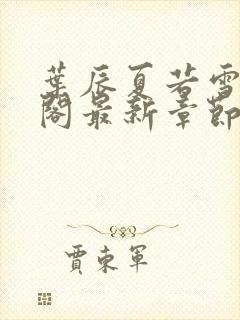 葉辰夏若雪
閣最新章節
賈東軍